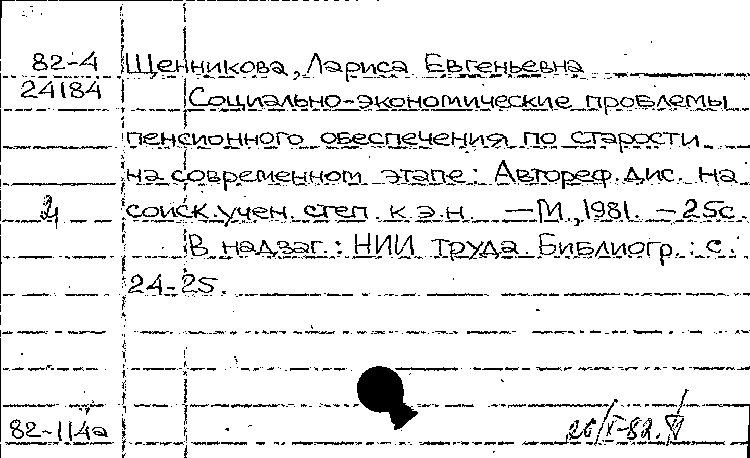 82-4 Щенникова, Лариса Евгеньевна
24184 Социально-экономические проблемы
пенсионного обеспечения по старости
на современном этапе: Автореф. дис. на
2 соиск. учен. степ. к.э.н. — М., 1981. — 25с.
В надзаг.: НИИ труда. Библиогр.: с.
24-25.
82-114а 26/I-82.